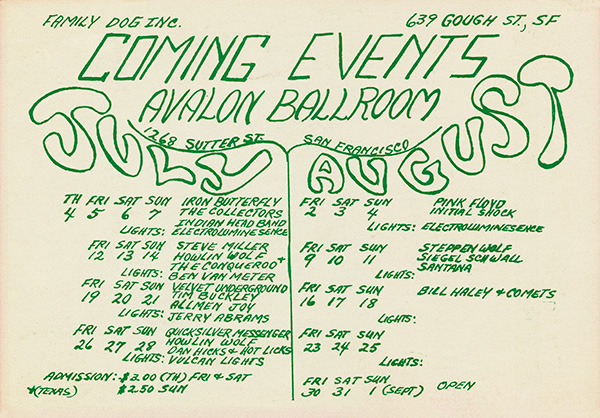 FAMILY DOG INC.
639 GOUGH ST., SF
COMING EVENTS
AVALON BALLROOM
1268 SUTTER ST.
SAN FRANCISCO
JULY
TH FRI SAT SUN IRON BUTTERFLY
4 5 6 7 THE COLLECTORS
INDIAN HEAD BAND
LIGHTS: ELECTROLUMINESENCE
FRI SAT SUN STEVE MILLER
12 13 14 HOWLIN WOLF
THE CONQUEROO*
LIGHTS: BEN VAN METER
FRI SAT SUN VELVET UNDERGROUND
19 20 21 TIM BUCKLEY
ALLMEN JOY
LIGHTS: JERRY ABRAMS
FRI SAT SUN QUICKSILVER MESSENGER
26 27 28 HOWLIN WOLF
DAN HICKS & HOT LICKS
LIGHTS: VULCAN LIGHTS
ADMISSION: $3.00 (TH) FRI & SAT
*(TEXAS) $2.50 SUN
AUGUST
FRI SAT SUN PINK FLOYD
2 3 4 INITIAL SHOCK
LIGHTS: ELECTROLUMINESENCE
FRI SAT SUN STEPPENWOLF
9 10 11 SIEGEL SCHWALL
LIGHTS: SANTANA
FRI SAT SUN BILL HALEY & COMETS
16 17 18
LIGHTS:
FRI SAT SUN
23 24 25
LIGHTS:
FRI SAT SUN
30 31 1 (SEPT) OPEN